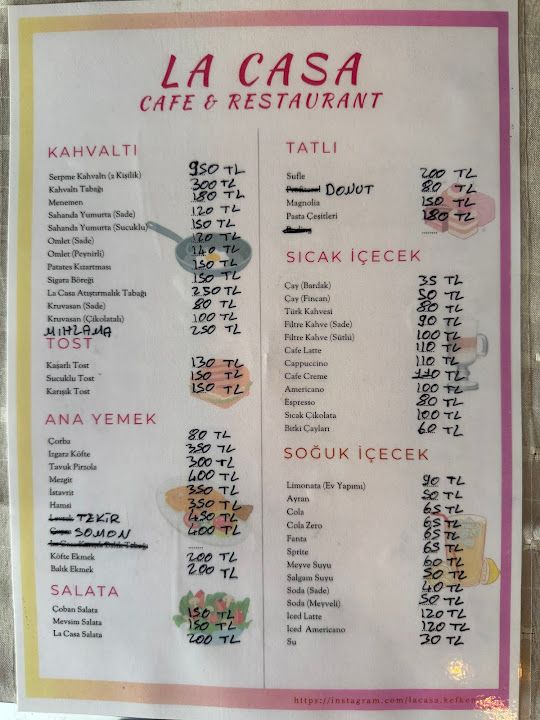 LA CASA
CAFE & RESTAURANT
KAHVALTI
Serpme Kahvaltı (2 Kişilik) 950 TL
Kahvaltı Tabağı 300 TL
Menemen 180 TL
Sahanda Yumurta (Sade) 120 TL
Sahanda Yumurta (Sucuklu) 150 TL
Omlet (Sade) 120 TL
Omlet (Peynirli) 140 TL
Patates Kızartması 150 TL
Sigara Böreği 150 TL
La Casa Atıştırmalık Tabağı 250 TL
Kruvasan (Sade) 80 TL
Kruvasan (Çikolatalı) 100 TL
MIHLAMA 250 TL
TOST
Kaşarlı Tost 130 TL
Sucuklu Tost 150 TL
Karışık Tost 150 TL
ANA YEMEK
Çorba 80 TL
Izgara Köfte 350 TL
Tavuk Pirzola 300 TL
Mezgit 400 TL
İstavrit 350 TL
Hamsi 350 TL
TEKİR 450 TL
SOMON 400 TL
Köfte Ekmek 200 TL
Balık Ekmek 200 TL
SALATA
Çoban Salata 150 TL
Mevsim Salata 150 TL
La Casa Salata 200 TL
TATLI
Sufle 200 TL
DONUT 80 TL
Magnolia 150 TL
Pasta Çeşitleri 180 TL
SICAK İÇECEK
Çay (Bardak) 35 TL
Çay (Fincan) 50 TL
Türk Kahvesi 80 TL
Filtre Kahve (Sade) 90 TL
Filtre Kahve (Sütlü) 100 TL
Cafe Latte 110 TL
Cappuccino 110 TL
Cafe Creme 110 TL
Americano 100 TL
Espresso 80 TL
Sıcak Çikolata 100 TL
Bitki Çayları 60 TL
SOĞUK İÇECEK
Limonata (Ev Yapımı) 90 TL
Ayran 50 TL
Cola 65 TL
Cola Zero 65 TL
Fanta 65 TL
Sprite 65 TL
Meyve Suyu 60 TL
Şalgam Suyu 50 TL
Soda (Sade) 40 TL
Soda (Meyveli) 50 TL
Iced Latte 120 TL
Iced Americano 120 TL
Su 30 TL
https://instagram.com/lacasa.kefken